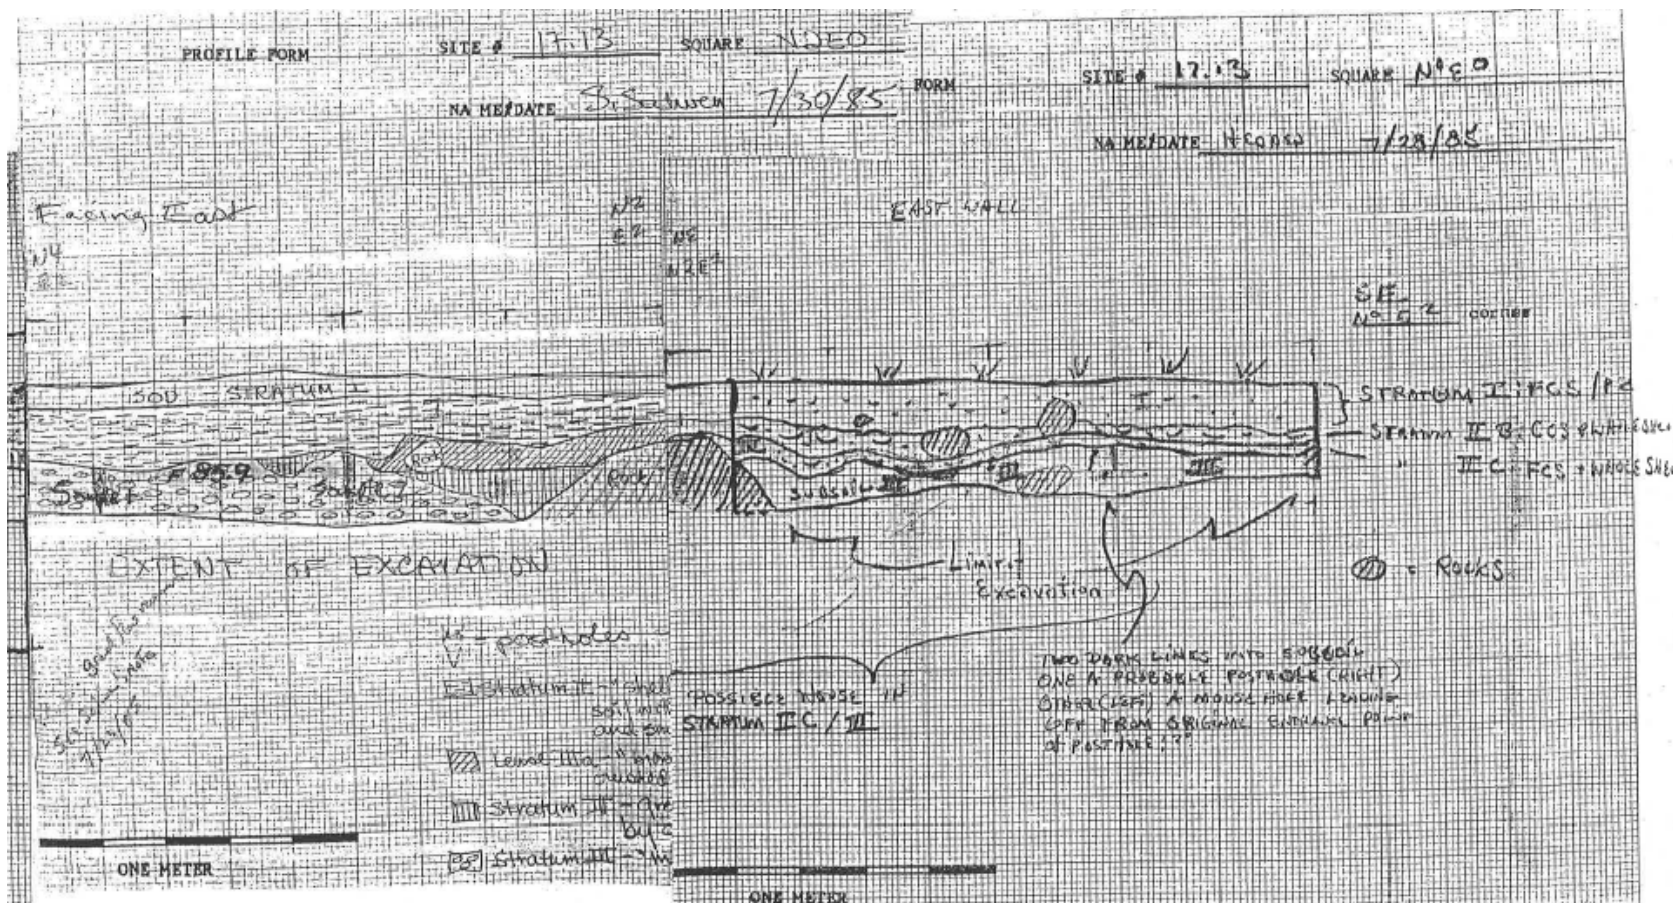 PROFILE FORM
SITE # 17.13 SQUARE N2E0
NAME/DATE 7/30/85
Facing East
N4
E2
N2
E2
SOD STRATUM I
F 859
Rock
Rock
EXTENT OF EXCAVATION
7/28/85
- postholes
Stratum II - "shell
soil with
and sm
Lense IIIa - "brow
crushed
Stratum III - gre
by c
Stratum III - "m
ONE METER
FORM
SITE # 17.13 SQUARE N0E0
NAME/DATE 7/28/85
EAST WALL
NE
N2E2
SE
N0E2 CORNER
I
SUBSOIL III
III
III
STRATUM I: FCS/PC
STRATUM II B: CCS + WHOLE SHELL
" II C: FCS + WHOLE SHEL
Limit of
Excavation
= ROCKS
POSSIBLE HOUSE IN
STRATUM II C / III
TWO DARK LINES INTO SUBSOIL
ONE A PROBABLE POSTHOLE (RIGHT)
OTHER (LEFT) A MOUSE HOLE LEADING
OFF FROM ORIGINAL ENTRANCE POINT
OF POSTHOLE!?"
ONE METER